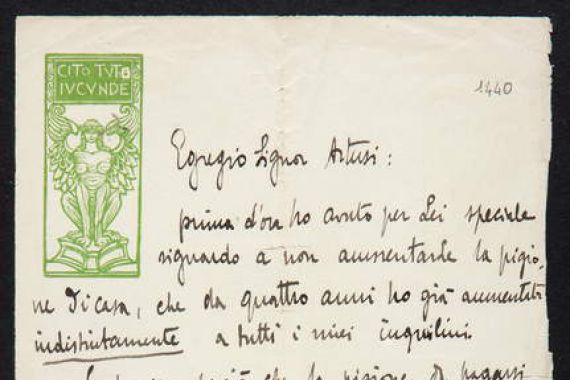 CITO TVTO
IVCVNDE
1440
Egregio Signor Artusi:
prima d'ora ho avuto per Lei speciale
riguardo a non aumentarle la pigio,
ne di casa, che da quattro anni ho già aumentata
indistintamente a tutti i miei inquilini.
che la pigione di pagassi